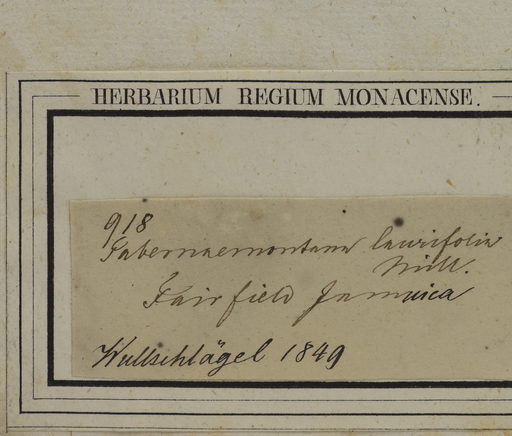 HERBARIUM REGIUM MONACENSE.
918
Tabernaemontana laurifolia
Mill.
Fairfield Jamaica
Wullschlägel 1849